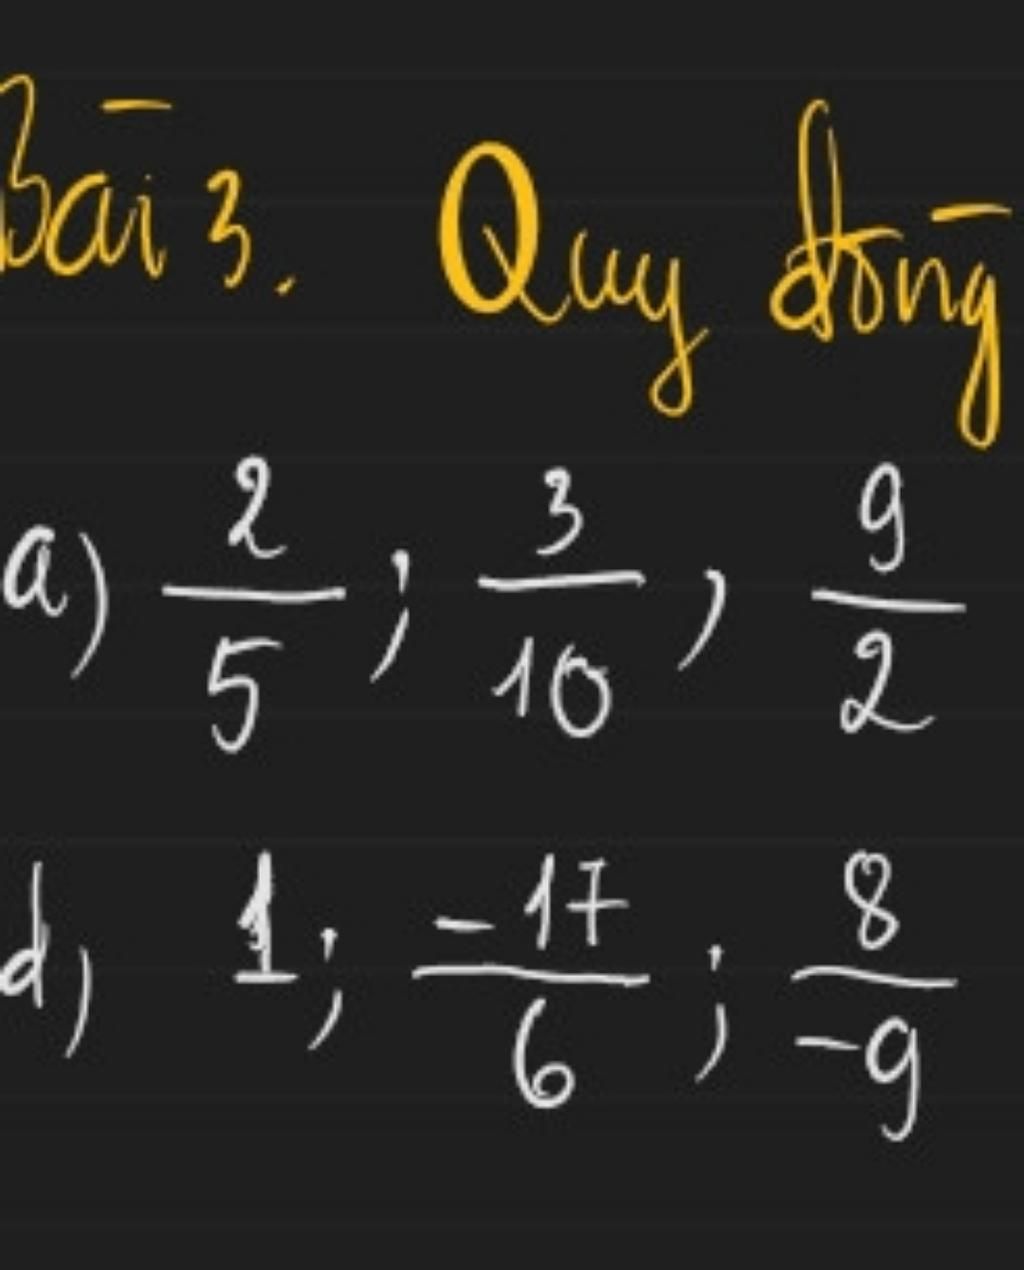 Bài 3. Quy đồng
a) 2/5 ; 3/10 , 9/2
d) 1 ; -17/6 ; 8/-9